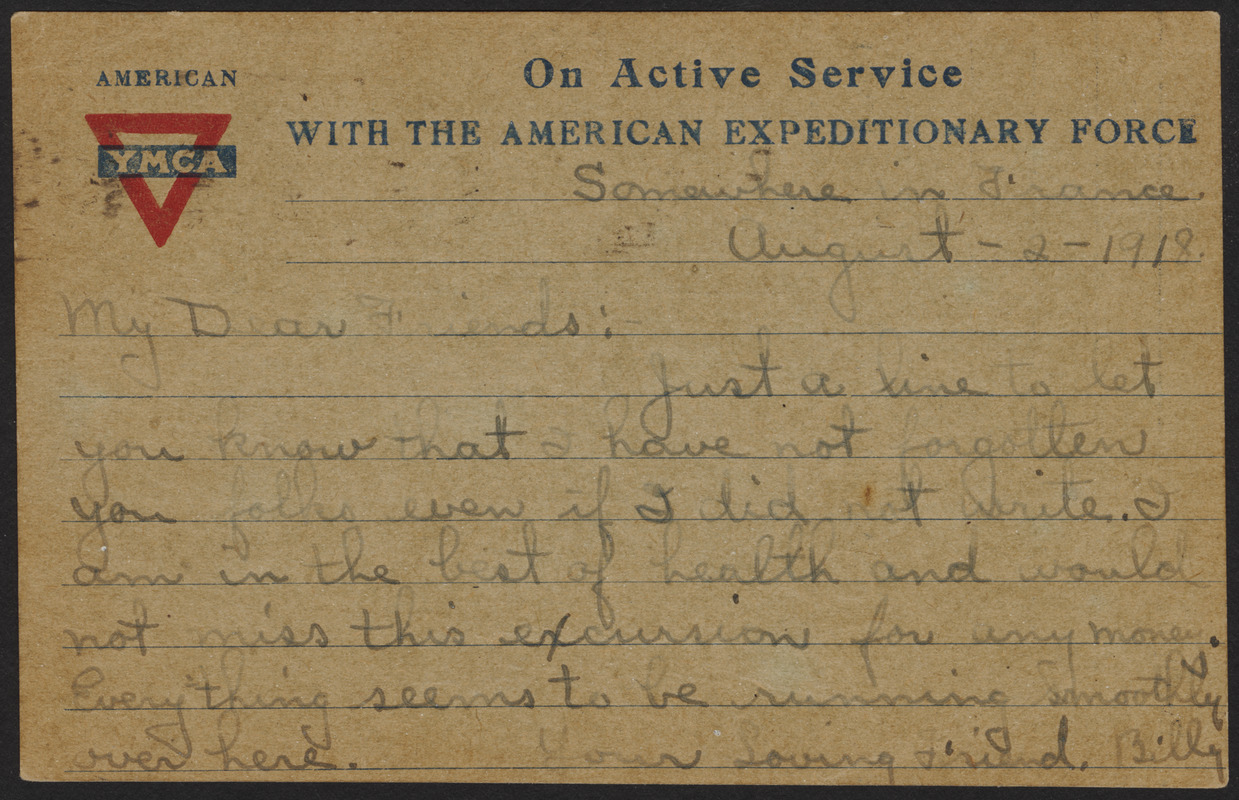 AMERICAN
YMCA
On Active Service
WITH THE AMERICAN EXPEDITIONARY FORCE
Somewhere in France.
August - 2 - 1918.
My Dear Friends:-
Just a line to let
you know that I have not forgotten
you folks even if I did not write. I
am in the best of health and would
not miss this excursion for any money.
Everything seems to be running smoothly
over here. Your Loving Friend. Billy